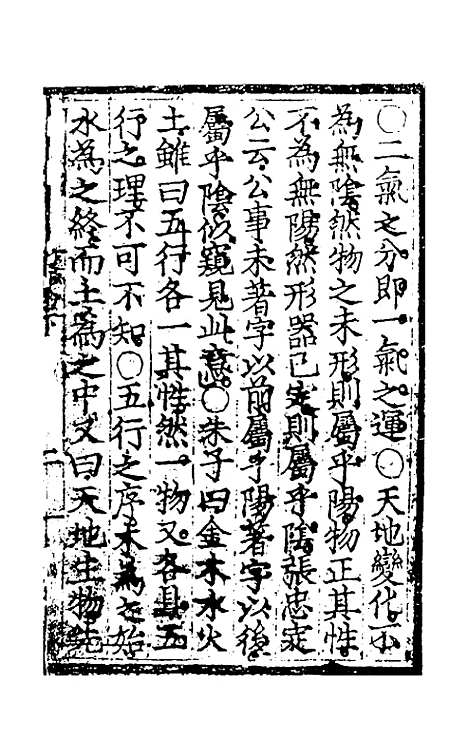 〇二氣之分即一氣之運〇天地變化不
為無陰然物之未形則屬乎陽物正其性
不為無陽然形器已定則屬乎陰張忠定
公云公事未著字以前屬乎陽著字以後
屬乎陰似窺見此意〇朱子曰金木水火
土雖曰五行各一其性然一物又各具五
行之理不可不知〇五行之序木為之始
水為之終而土為之中又曰天地生物先